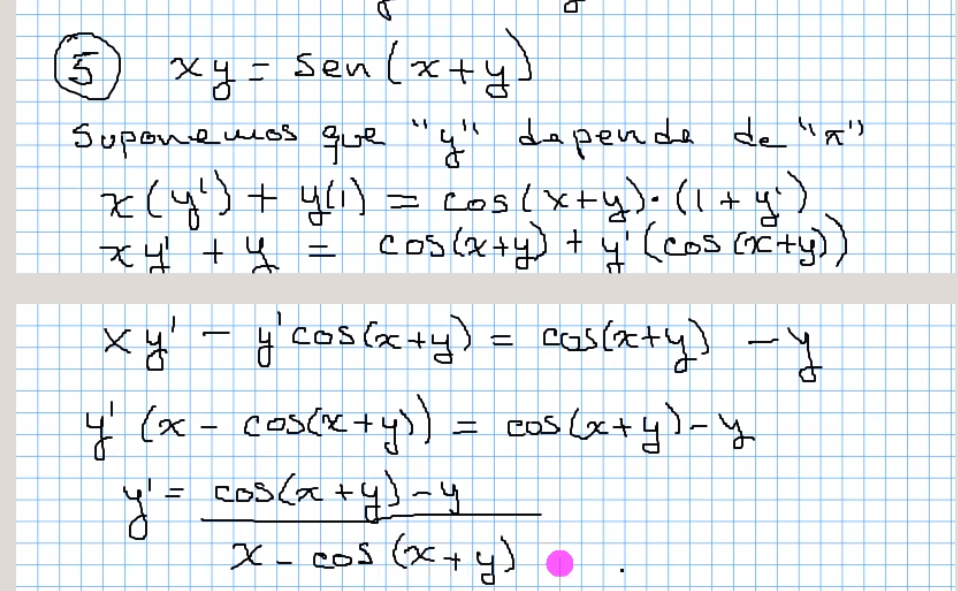 ⑤ xy = sen(x+y)
Suponemos que "y" depende de "x"
x(y') + y(1) = cos(x+y)·(1+y')
xy' + y = cos(x+y) + y'(cos(x+y))
xy' - y'cos(x+y) = cos(x+y) - y
y'(x - cos(x+y)) = cos(x+y) - y
y' = cos(x+y) - y
x - cos(x+y) .